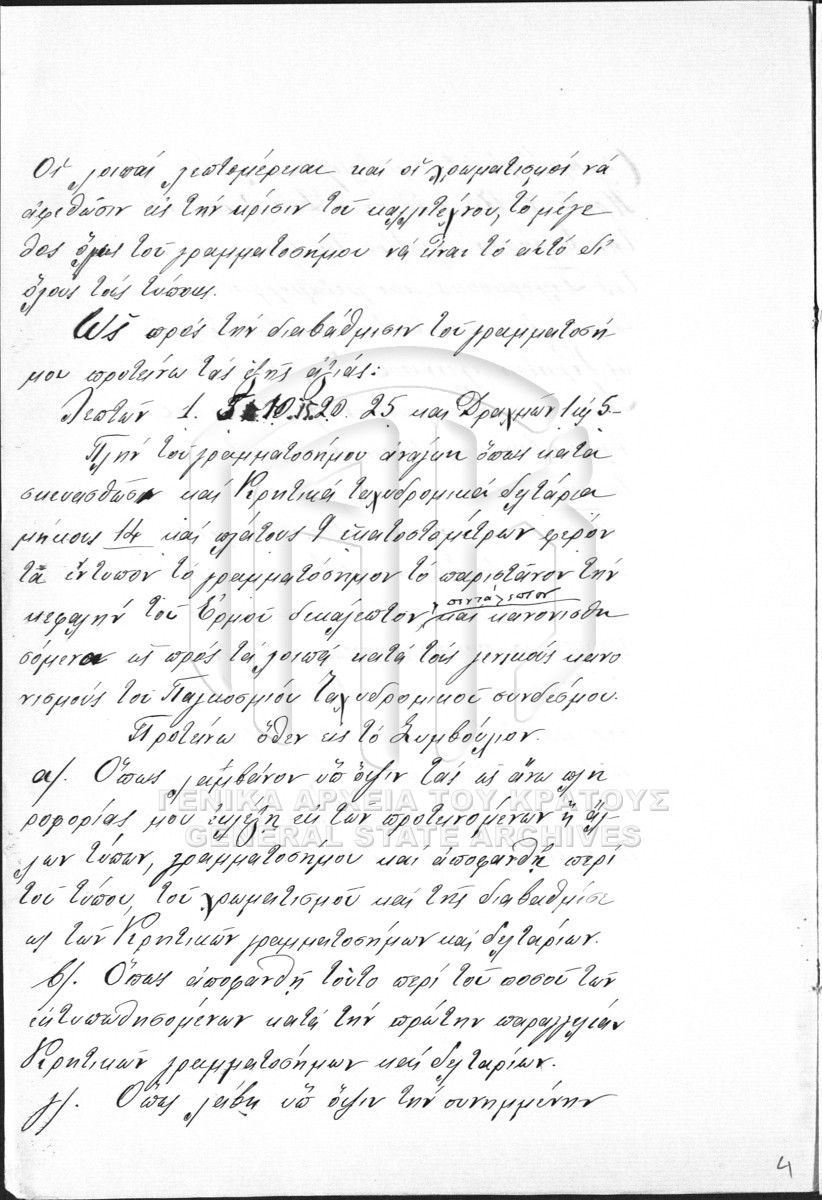 Οἱ λοιπαί λεπτομέρειαι καί οἱ χρωματισμοί νά
ἀφεθῶσιν εἰς τήν κρίσιν τοῦ καλλιτέχνου, τό μέγε
θος ὅμως τοῦ γραμματοσήμου νά εἶναι τό αὐτό δι'
ὅλους τούς τύπους.
Ὡς πρός τήν διαβάθμισιν τοῦ γραμματοσή
μου προτείνω τάς ἑξῆς ἀξίας:
Λεπτῶν 1. 5. 10. 15. 20. 25 καί Δραχμῶν 1 5-
Πλήν τοῦ γραμματοσήμου ἀνάγκη ὅπως κατα
σκευασθῶσι καί Κρητικά ταχυδρομικά δελτάρια
μήκους 14 καί πλάτους 9 ἑκατοστομέτρων φέρον
τα ἔντυπον τό γραμματόσημον τό παριστάνον τήν
κεφαλήν τοῦ Ἑρμοῦ δεκάλεπτον, πεντάλεπτον καί κανονισθη
σόμενα ὡς πρός τά λοιπά κατά τούς γενικούς κανο
νισμούς τοῦ Παγκοσμίου Ταχυδρομικοῦ συνδέσμου.
Προτείνω ὅθεν εἰς τό Συμβούλιον.
α/. Ὅπως λαμβάνον ὑπ' ὄψιν τάς ὡς ἄνω πλη
ροφορίας μου ἐκλέξῃ ἐκ τῶν προτεινομένων ἤ ἄλ
λων τύπων, γραμματοσήμου καί ἀποφανθῇ περί
τοῦ τύπου, τοῦ χρωματισμοῦ καί τῆς διαβαθμίσε
ως τῶν Κρητικῶν γραμματοσήμων καί δελταρίων.
β/. Ὅπως ἀποφανθῇ τοῦτο περί τοῦ ποσοῦ τῶν
ἐκτυπωθησομένων κατά τήν πρώτην παραγγελίαν
Κρητικῶν γραμματοσήμων καί δελταρίων.
γ/. Ὅπως λάβῃ ὑπ' ὄψιν τήν συνημμένην
ΓΕΝΙΚΑ ΑΡΧΕΙΑ ΤΟΥ ΚΡΑΤΟΥΣ
GENERAL STATE ARCHIVES
4